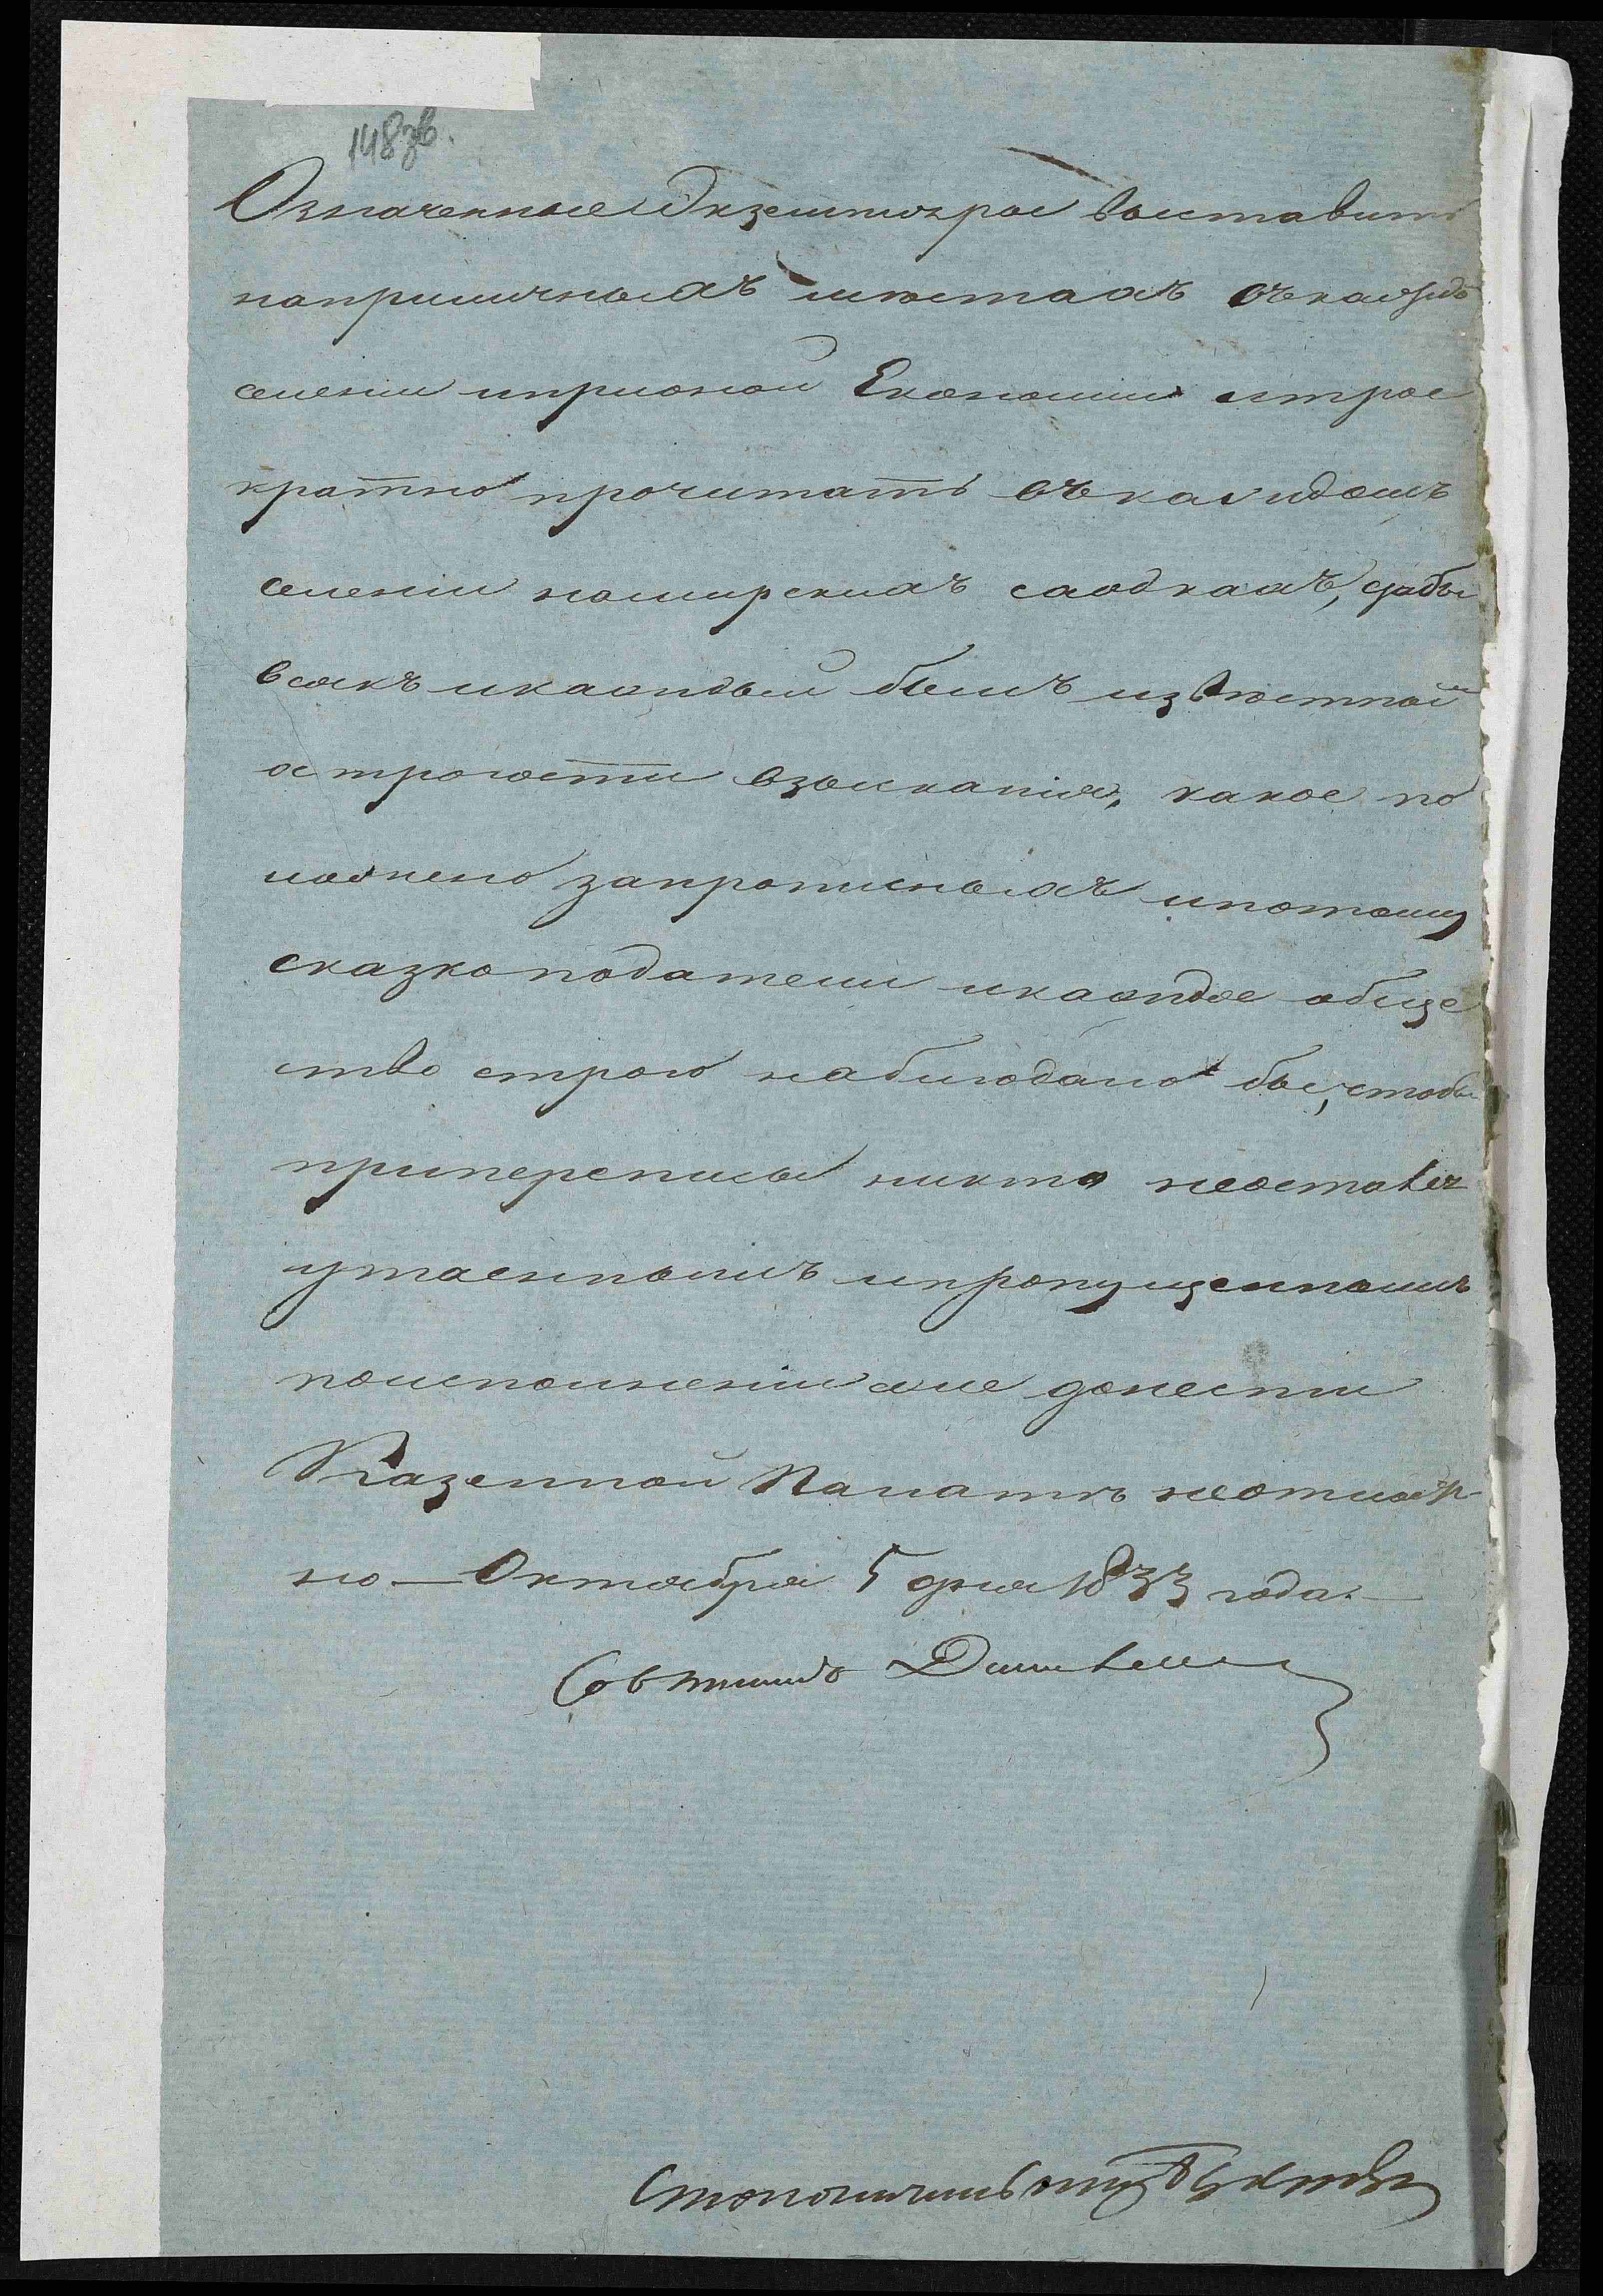 148 зв.
Означенные Экземпляры выставить
наприличныхъ мѣстахъ въкаждо
селении ипримной Економии итрое
кратно прочитать въкаждомъ
селении намирскихъ сходкахъ, дабы
всякъ икаждый былъ извѣстной
острогости взыскания, какое по
ложено запрописныхъ ипотому
сказкоподатели икаждое обще
ство строго наблюдало бы, чтобы
приперепись никто неоставлъ
утаеннымъ ипропущеннымъ
поисполнении же донести
Казенной Палатѣ неотмѣн
но — Октября 5 дня 1833 года. —
Совѣтникъ
Столоначальникъ